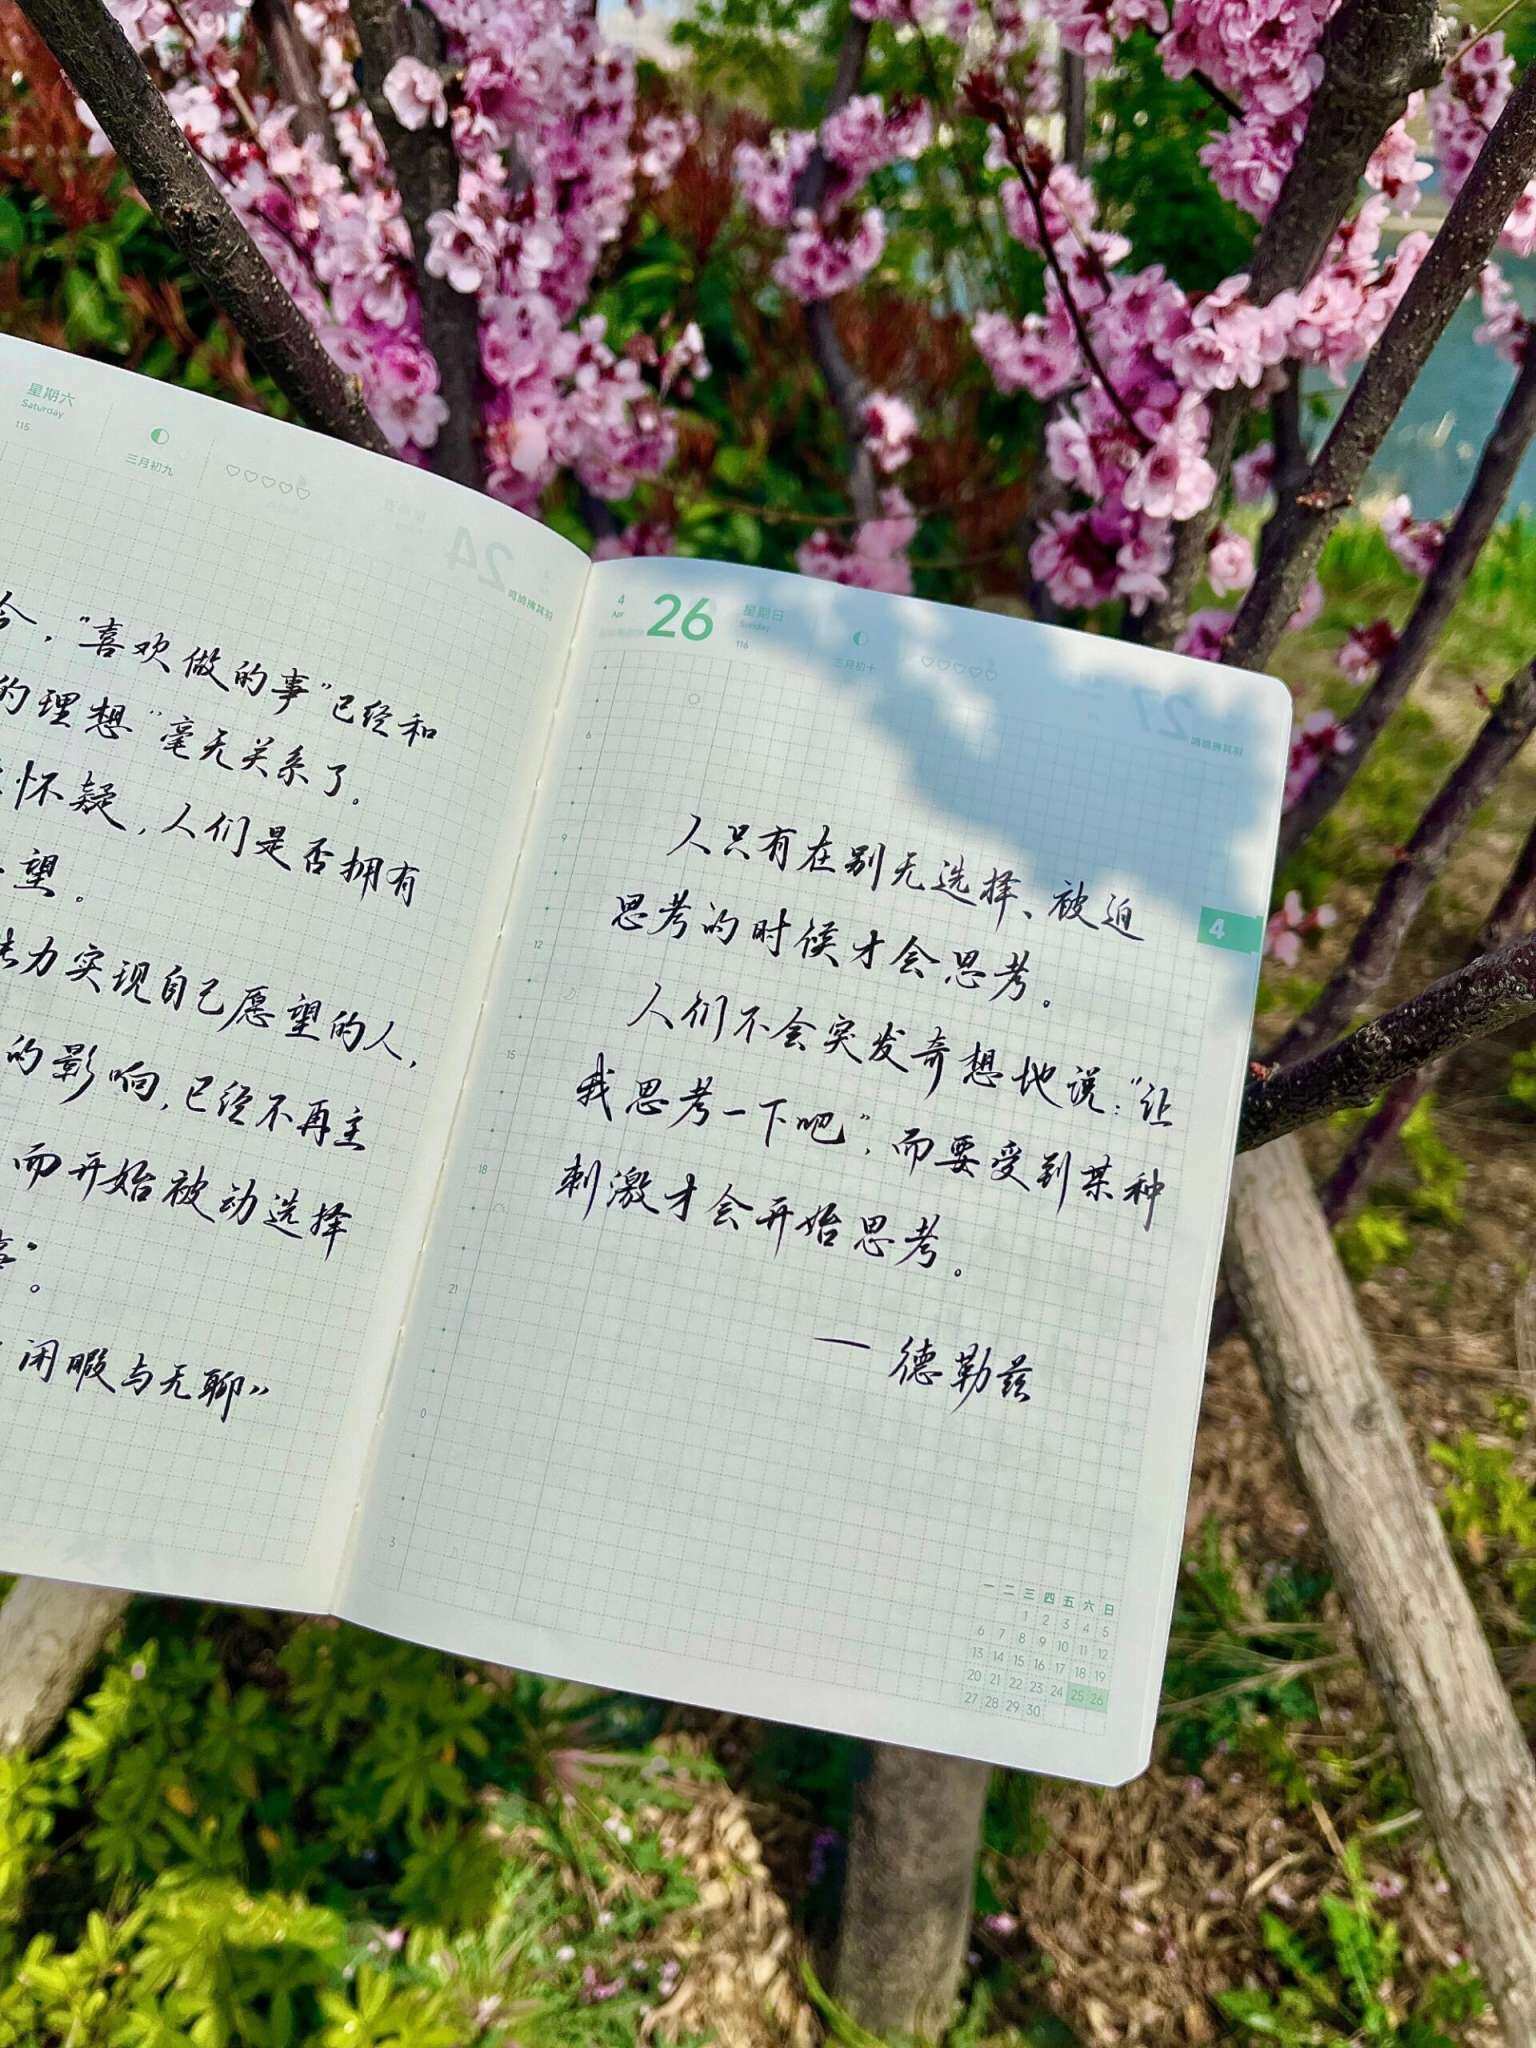 星期六
Saturday
115
三月初九
♡♡♡♡♡
，“喜欢做的事”已经和
的理想”毫无关系了。
怀疑，人们是否拥有
望。
力实现自己愿望的人，
的影响，已经不再主
而开始被动选择
”。
闲暇与无聊》
4
Apr
26
星期日
Sunday
116
三月初十
♡♡♡♡♡
6
9
12
15
18
21
0
3
人只有在别无选择、被迫
思考的时候才会思考。
人们不会突发奇想地说：“让
我思考一下吧”，而要受到某种
刺激才会开始思考。
— 德勒兹
4
一 二 三 四 五 六 日
1 2 3 4 5
6 7 8 9 10 11 12
13 14 15 16 17 18 19
20 21 22 23 24 25 26
27 28 29 30